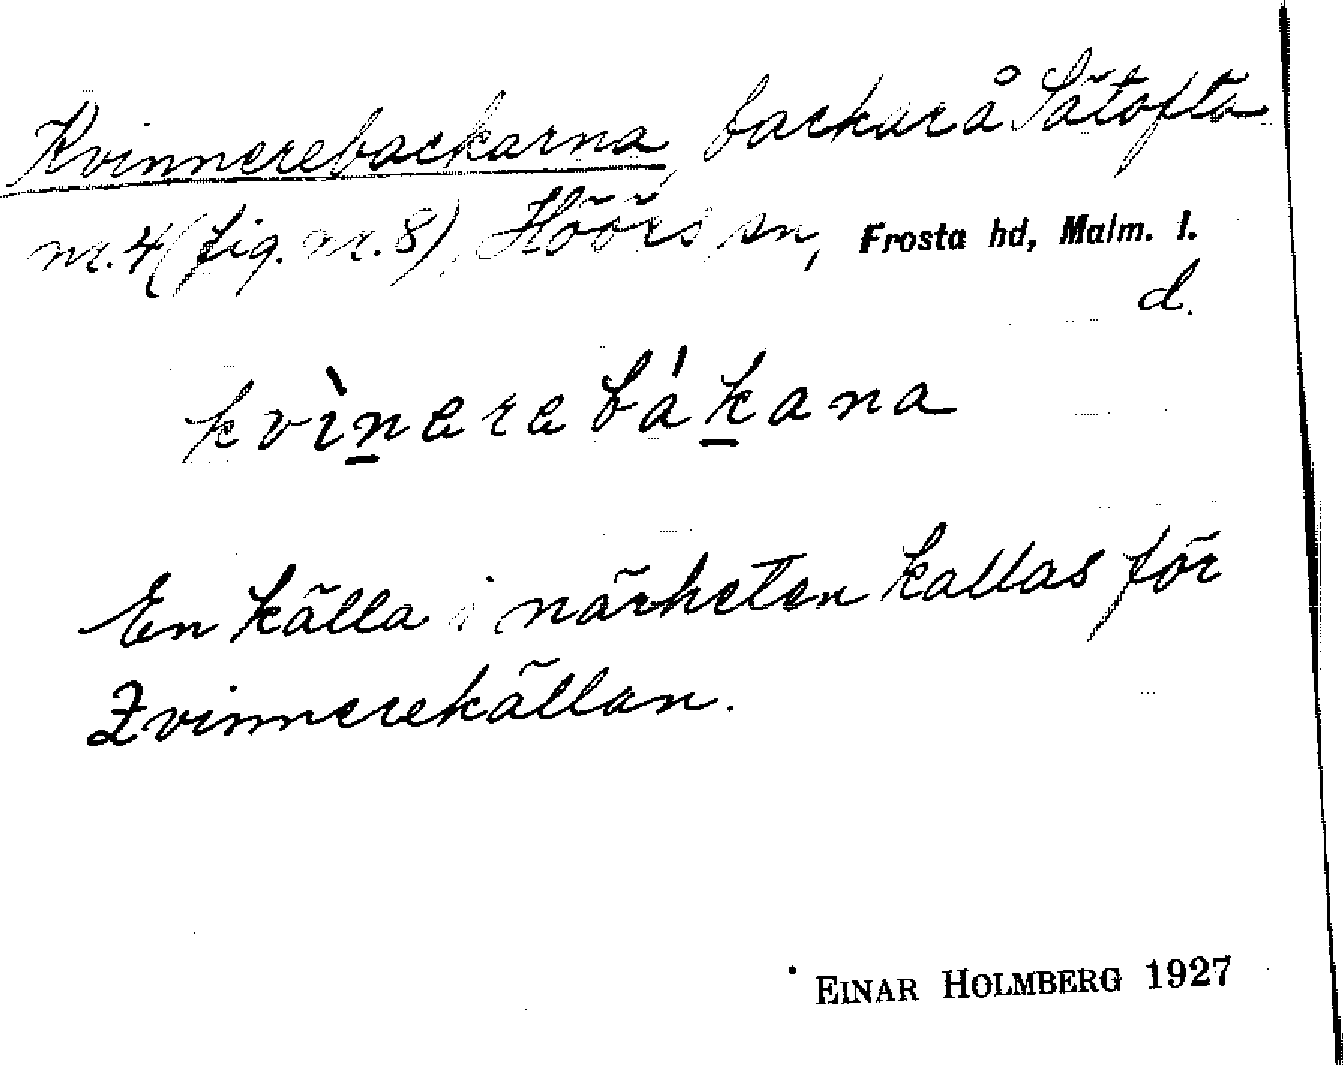 Kvinnerebackarna, backar å Sätofta
nr. 4 (fig. nr. 8), Höörs sn, Frosta hd, Malm. l.
d.
kvìn̲erebák̲ana
En källa i närheten kallas för
Qvinnerekällan.
EINAR HOLMBERG 1927